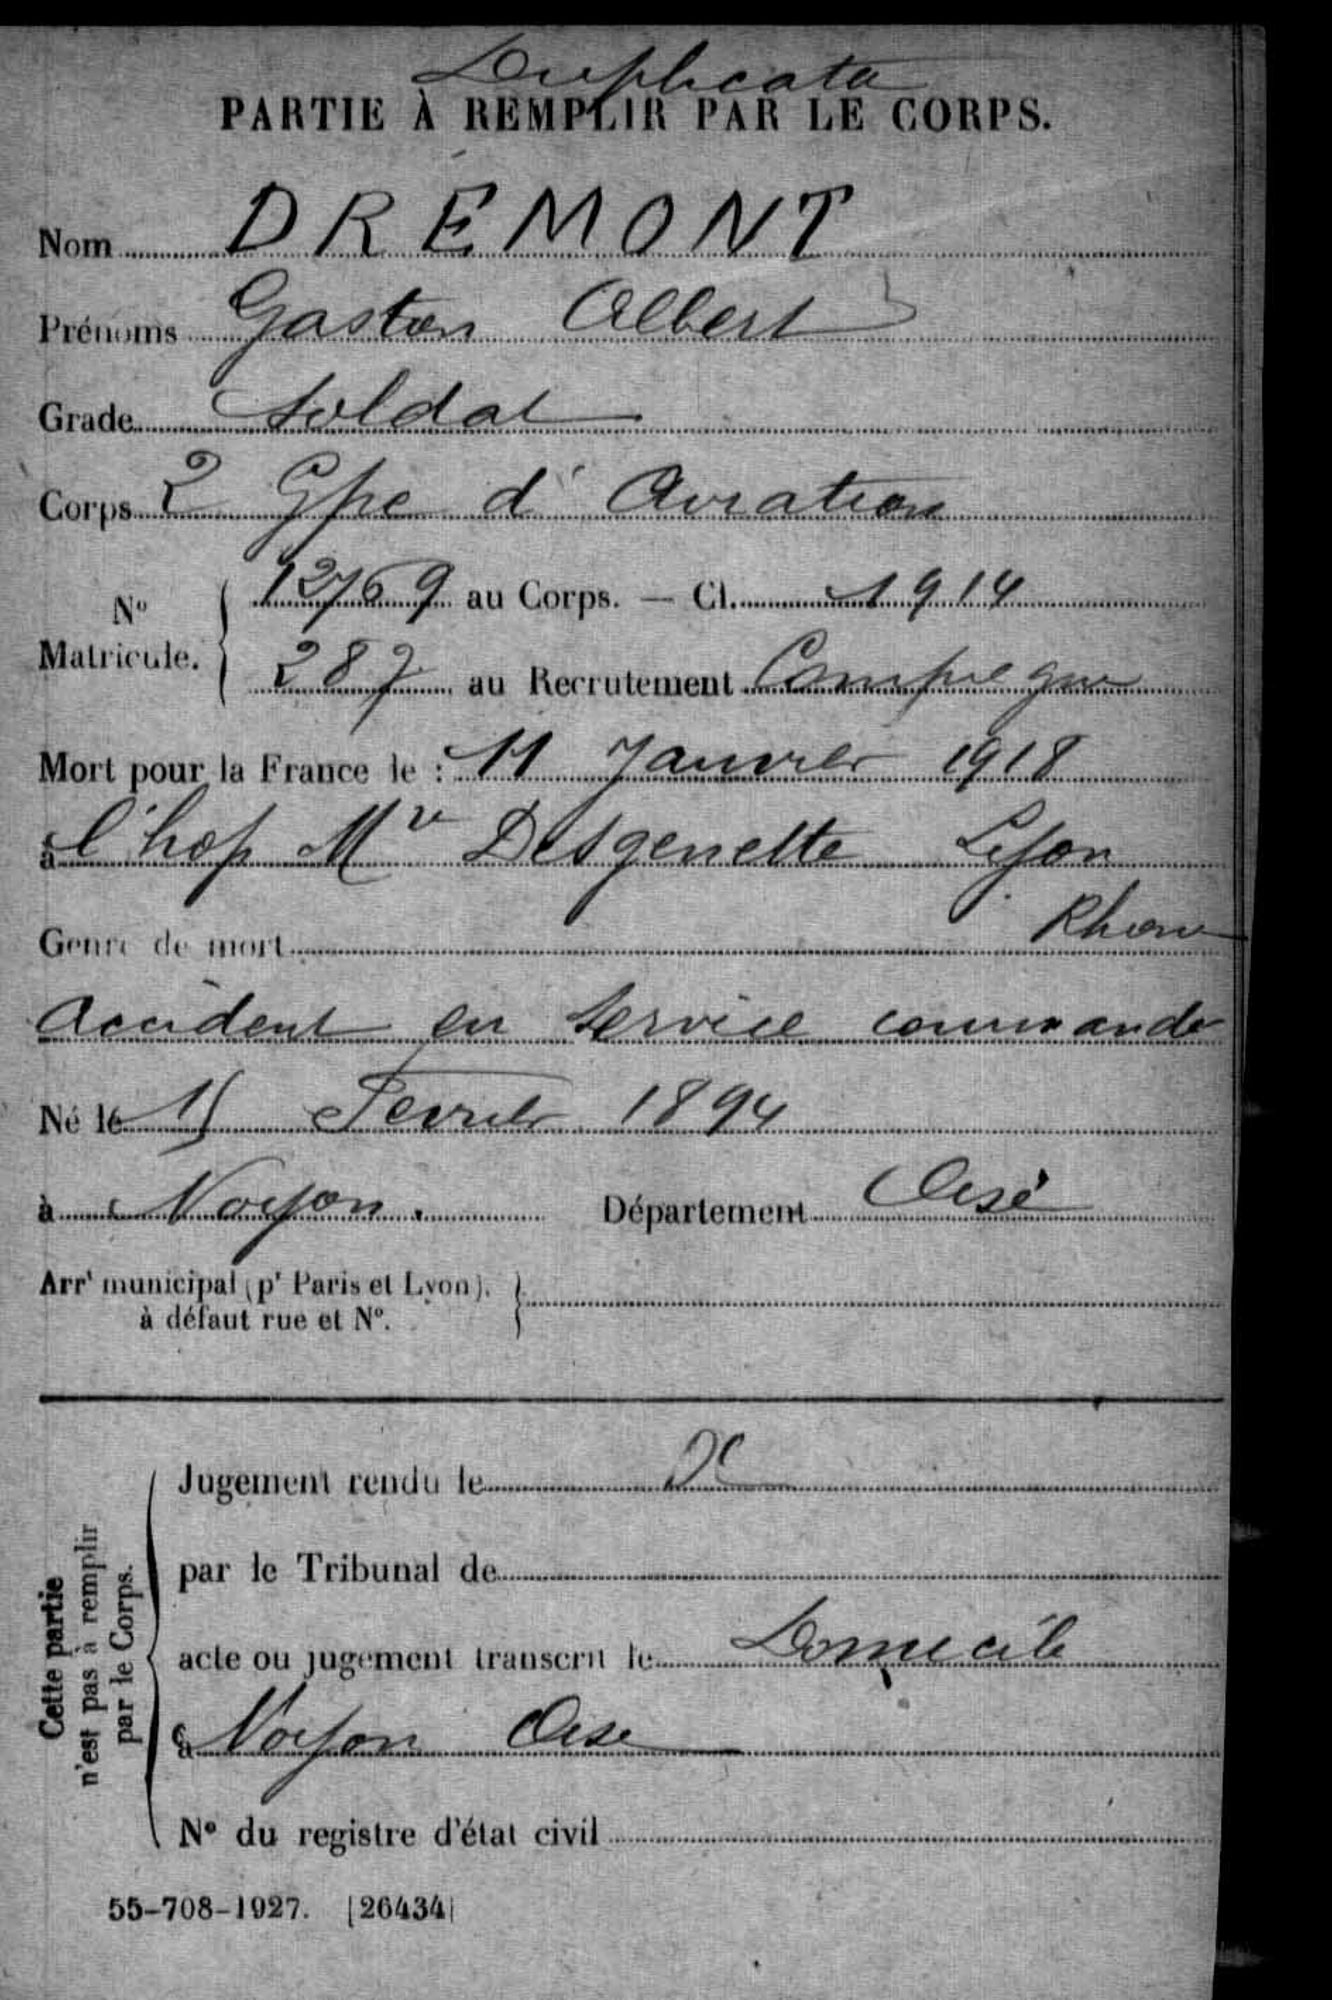 Duplicata
PARTIE À REMPLIR PAR LE CORPS.
Nom DREMONT
Prénoms Gaston Albert
Grade Soldat
Corps 2 Gpe d'Aviation
No Matricule. 12769 au Corps. — Cl. 1914
287 au Recrutement Compiegne
Mort pour la France le : 11 Janvier 1918
à l'hop Mre Desgenette Lyon
Rhone
Genre de mort
Accident en service commandé
Né le 15 Fevrier 1894
à Noyon. Département Oise
Arrt municipal (pr Paris et Lyon),
à défaut rue et No.
Cette partie
n'est pas à remplir
par le Corps.
Jugement rendu le
par le Tribunal de
acte ou jugement transcrit le Domicile
à Noyon Oise
No du registre d'état civil
55-708-1927. [26434]